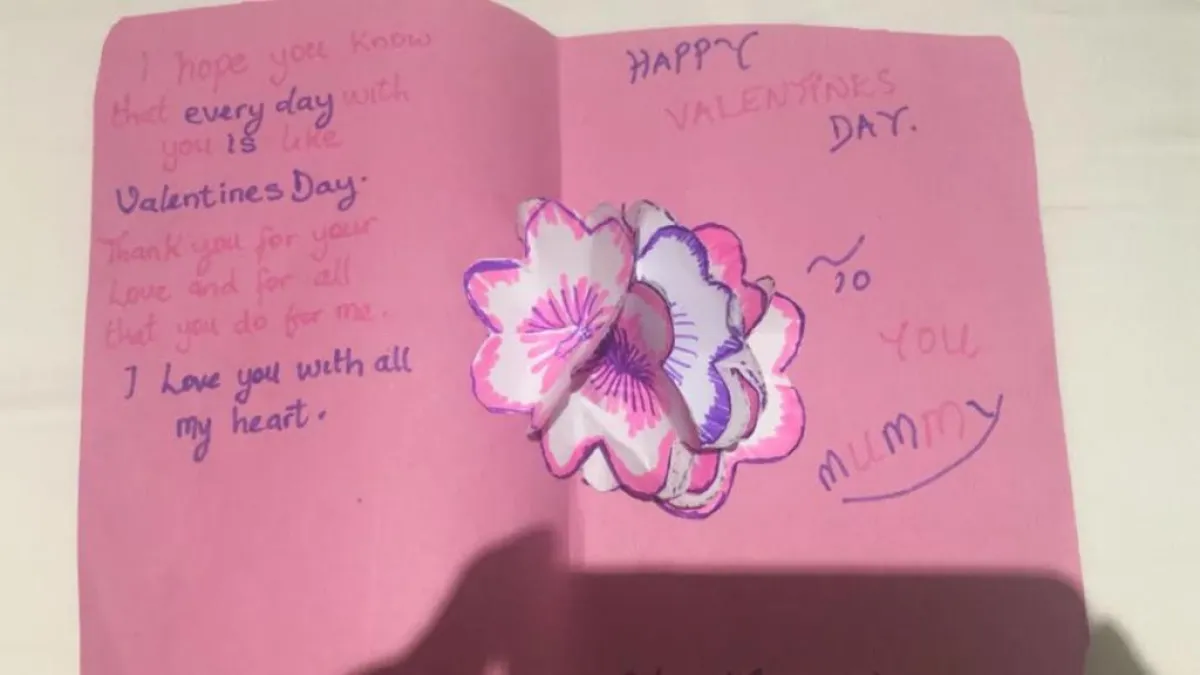 I hope you know
that every day with
you is like
Valentines Day.
Thank you for your
Love and for all
that you do for me.
I Love you with all
my heart.
HAPPY
VALENTINES
DAY.
TO
YOU
MUMMY